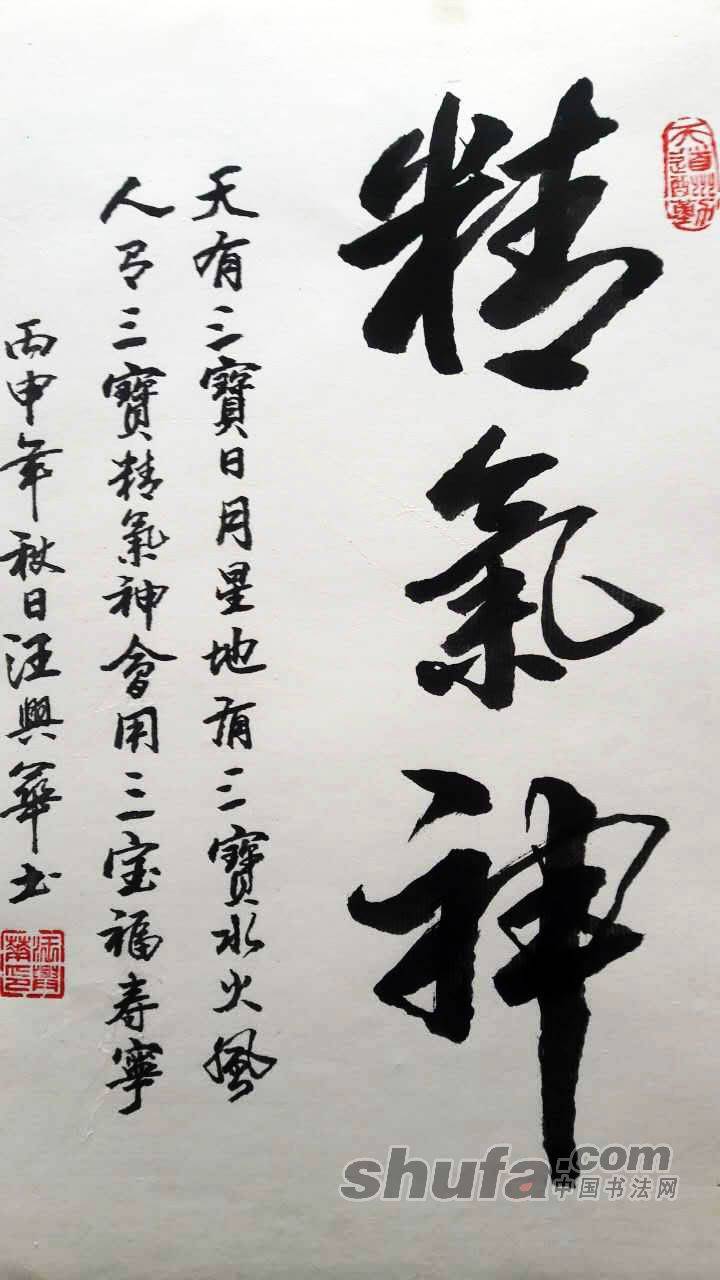 精氣神
天道酬勤
天有三寶日月星地有三寶水火風
人有三寶精氣神會用三宝福寿寧
丙申年秋日汪興華书
汪興華印
shufa.com
中国书法网